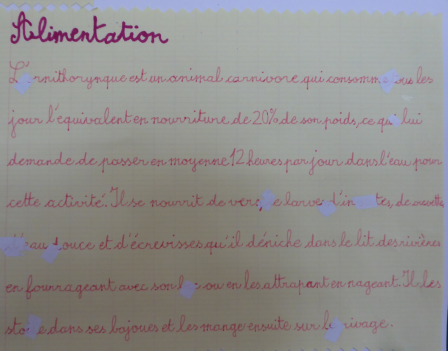 Alimentation
L'ornithorynque est un animal carnivore qui consomme tous les
jour l'équivalent en nourriture de 20% de son poids, ce qui lui
demande de passer en moyenne 12 heures par jour dans l'eau pour
cette activité. Il se nourrit de vers, de larve d'insectes, de crevette
d'eau douce et d'écrevisses qu'il déniche dans le lit des rivières
en fourrageant avec son bec ou en les attrapant en nageant. Il les
stocke dans ses bajoues et les mange ensuite sur le rivage.